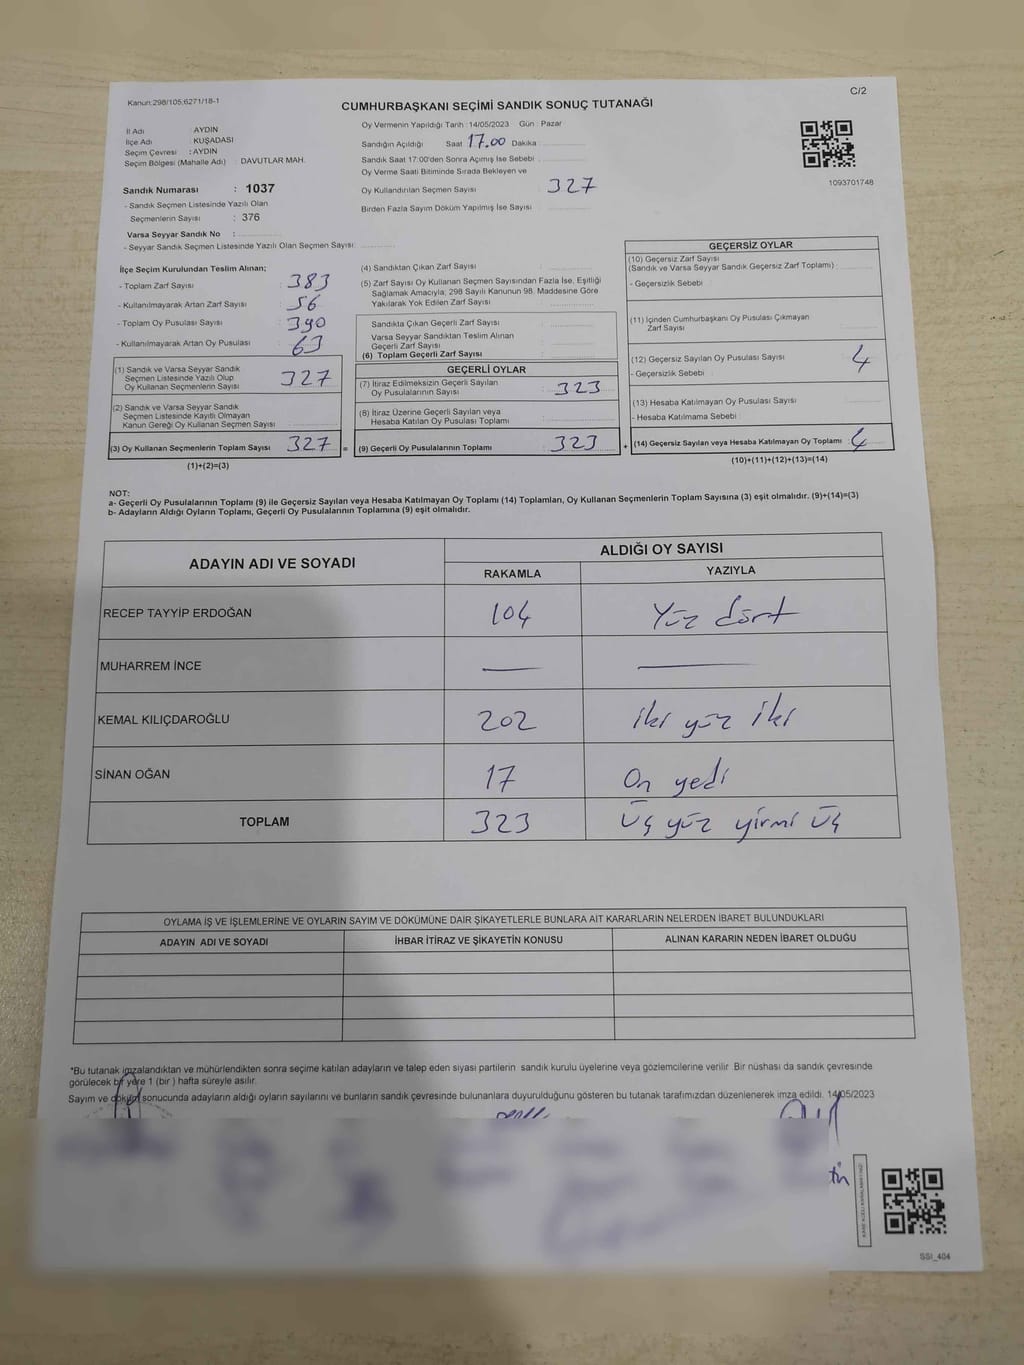 Kanun:298/105;6271/18-1
C/2
CUMHURBAŞKANI SEÇİMİ SANDIK SONUÇ TUTANAĞI
İl Adı : AYDIN
İlçe Adı : KUŞADASI
Seçim Çevresi : AYDIN
Seçim Bölgesi (Mahalle Adı) : DAVUTLAR MAH.
Sandık Numarası : 1037
- Sandık Seçmen Listesinde Yazılı Olan
Seçmenlerin Sayısı : 376
Varsa Seyyar Sandık No :
- Seyyar Sandık Seçmen Listesinde Yazılı Olan Seçmen Sayısı:
Oy Vermenin Yapıldığı Tarih :14/05/2023 Gün : Pazar
Sandığın Açıldığı Saat 17.00 Dakika
Sandık Saat 17:00'den Sonra Açımış İse Sebebi
Oy Verme Saati Bitiminde Sırada Bekleyen ve
Oy Kullandırılan Seçmen Sayısı : 327
Birden Fazla Sayım Döküm Yapılmış İse Sayısı :
1093701748
İlçe Seçim Kurulundan Teslim Alınan;
- Toplam Zarf Sayısı : 383
- Kullanılmayarak Artan Zarf Sayısı : 56
- Toplam Oy Pusulası Sayısı : 390
- Kullanılmayarak Artan Oy Pusulası : 63
(1) Sandık ve Varsa Seyyar Sandık
Seçmen Listesinde Yazılı Olup
Oy Kullanan Seçmenlerin Sayısı : 327
(2) Sandık ve Varsa Seyyar Sandık
Seçmen Listesinde Kayıtlı Olmayan
Kanun Gereği Oy Kullanan Seçmen Sayısı :
(3) Oy Kullanan Seçmenlerin Toplam Sayısı : 327 =
(1)+(2)=(3)
(4) Sandıktan Çıkan Zarf Sayısı :
(5) Zarf Sayısı Oy Kullanan Seçmen Sayısından Fazla İse, Eşitliği
Sağlamak Amacıyla; 298 Sayılı Kanunun 98. Maddesine Göre
Yakılarak Yok Edilen Zarf Sayısı :
Sandıkta Çıkan Geçerli Zarf Sayısı :
Varsa Seyyar Sandıktan Teslim Alınan
Geçerli Zarf Sayısı :
(6) Toplam Geçerli Zarf Sayısı :
GEÇERLİ OYLAR
(7) İtiraz Edilmeksizin Geçerli Sayılan
Oy Pusulalarının Sayısı : 323
(8) İtiraz Üzerine Geçerli Sayılan veya
Hesaba Katılan Oy Pusulası Toplamı :
(9) Geçerli Oy Pusulalarının Toplamı : 323 +
GEÇERSİZ OYLAR
(10) Geçersiz Zarf Sayısı
(Sandık ve Varsa Seyyar Sandık Geçersiz Zarf Toplamı) :
- Geçersizlik Sebebi :
(11) İçinden Cumhurbaşkanı Oy Pusulası Çıkmayan
Zarf Sayısı :
(12) Geçersiz Sayılan Oy Pusulası Sayısı : 4
- Geçersizlik Sebebi :
(13) Hesaba Katılmayan Oy Pusulası Sayısı :
- Hesaba Katılmama Sebebi :
(14) Geçersiz Sayılan veya Hesaba Katılmayan Oy Toplamı : 4
(10)+(11)+(12)+(13)=(14)
NOT:
a- Geçerli Oy Pusulalarının Toplamı (9) ile Geçersiz Sayılan veya Hesaba Katılmayan Oy Toplamı (14) Toplamları, Oy Kullanan Seçmenlerin Toplam Sayısına (3) eşit olmalıdır. (9)+(14)=(3)
b- Adayların Aldığı Oyların Toplamı, Geçerli Oy Pusulalarının Toplamına (9) eşit olmalıdır.
ADAYIN ADI VE SOYADI
ALDIĞI OY SAYISI
RAKAMLA YAZIYLA
RECEP TAYYİP ERDOĞAN 104 Yüz dört
MUHARREM İNCE — —
KEMAL KILIÇDAROĞLU 202 iki yüz iki
SİNAN OĞAN 17 On yedi
TOPLAM 323 Üç yüz yirmi üç
OYLAMA İŞ VE İŞLEMLERİNE VE OYLARIN SAYIM VE DÖKÜMÜNE DAİR ŞİKAYETLERLE BUNLARA AİT KARARLARIN NELERDEN İBARET BULUNDUKLARI
ADAYIN ADI VE SOYADI İHBAR İTİRAZ VE ŞİKAYETİN KONUSU ALINAN KARARIN NEDEN İBARET OLDUĞU
*Bu tutanak imzalandıktan ve mühürlendikten sonra seçime katılan adayların ve talep eden siyasi partilerin sandık kurulu üyelerine veya gözlemcilerine verilir. Bir nüshası da sandık çevresinde
görülecek bir yere 1 (bir ) hafta süreyle asılır.
Sayım ve döküm sonucunda adayların aldığı oyların sayılarını ve bunların sandık çevresinde bulunanlara duyurulduğunu gösteren bu tutanak tarafımızdan düzenlenerek imza edildi. 14/05/2023
SSI_404